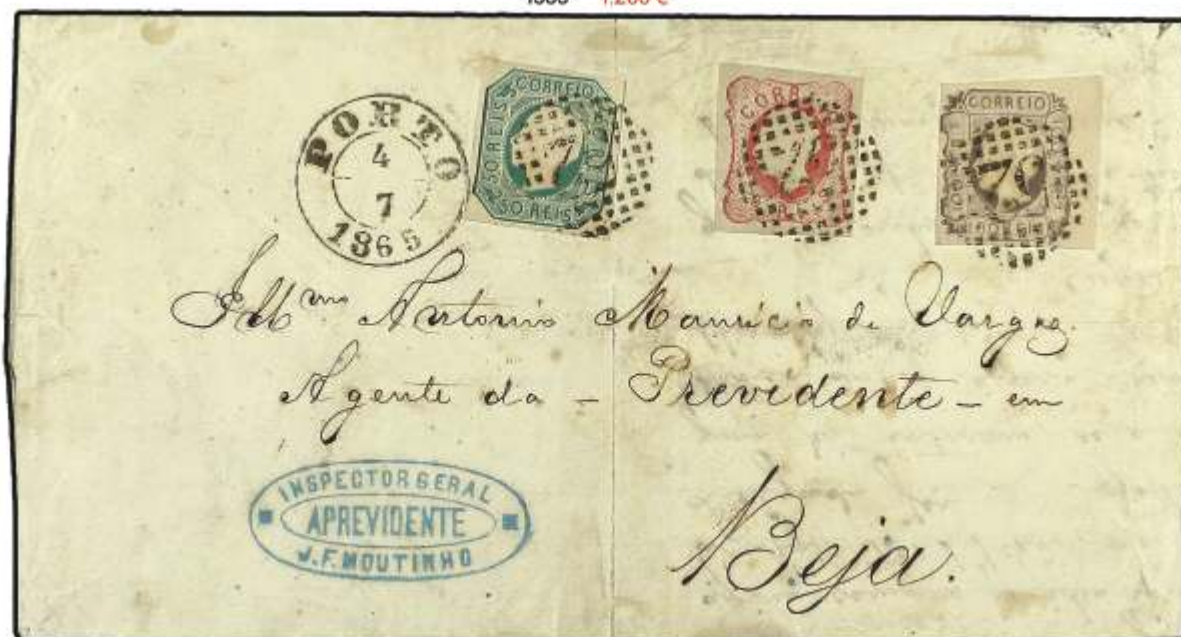 1.200 €
PORTO
4
7
1865
CORREIO
50 REIS
50 REIS
CORREIO
CORREIO
Illmo Antonio Mauricio de Vargas
Agente da - Previdente - em
Beja.
INSPECTOR GERAL
APREVIDENTE
J.F. MOUTINHO